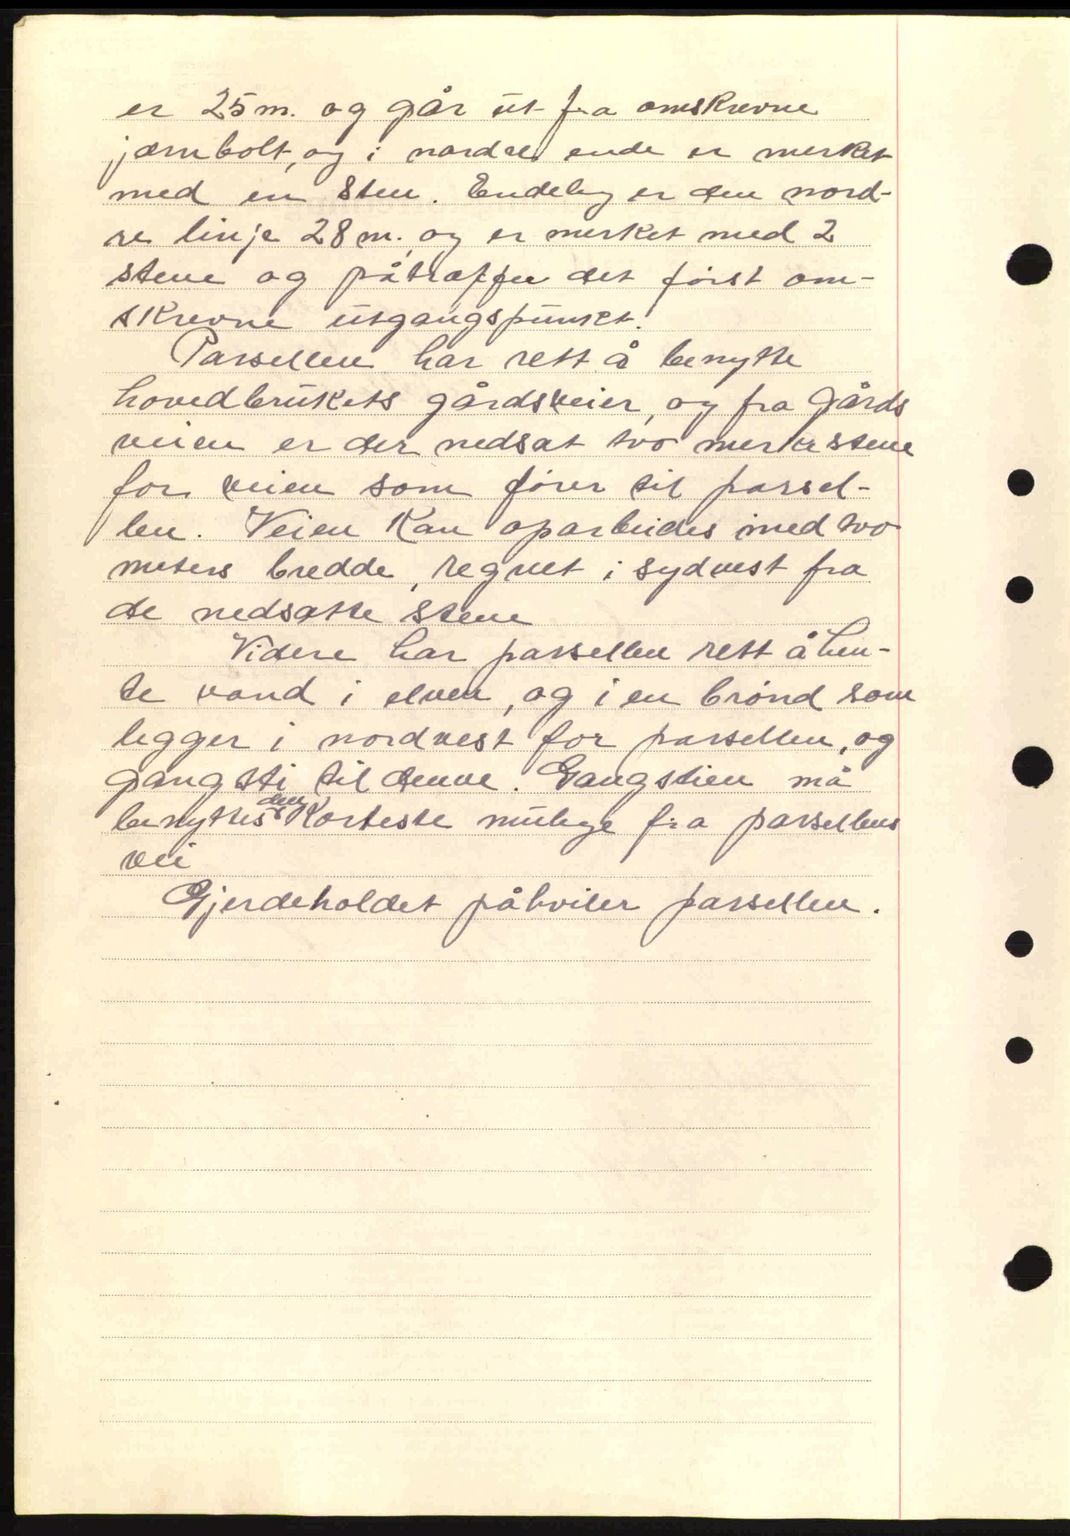 er 25 m. og går ut fra omskrevne
jærnbolt, og i nordre ende er merket
med en sten. Endelig er den nord-
re linje 28 m. og er merket med 2
stene og påtræffer det først om-
skrevne utgangspunkt.
Parsellen har rett å benytte
hovedbrukets gårdsveier, og fra gårds
veien er der nedsat tvo merkestene
for veien som fører til parsel-
len. Veien kan oparbeides med tvo
meters bredde, regnet i sydvest fra
de nedsatte stene
Videre har parsellen rett å hen-
te vand i elven, og i en brønd som
ligger i nordvest for parsellen, og
gangsti til denne. Gangstien må
benyttes den korteste mulige fra parsellens
vei
Gjerdeholdet påhviler parsellen.